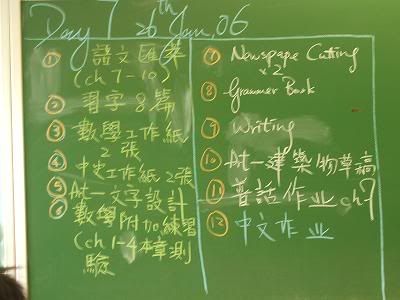 Day 7 26th Jan, 06
① 語文匯萃
(ch 7-10)
② 習字8篇
③ 數學工作紙
2張
④ 中史工作紙 2張
⑤ Art-文字設計
⑥ 數學附加練習
(ch 1-4本章測
驗
⑦ Newspape Cutting
×2
⑧ Grammer Book
⑨ Writing
⑩ Art-建築物草稿
⑪ 普話作业 ch7
⑫ 中文作业